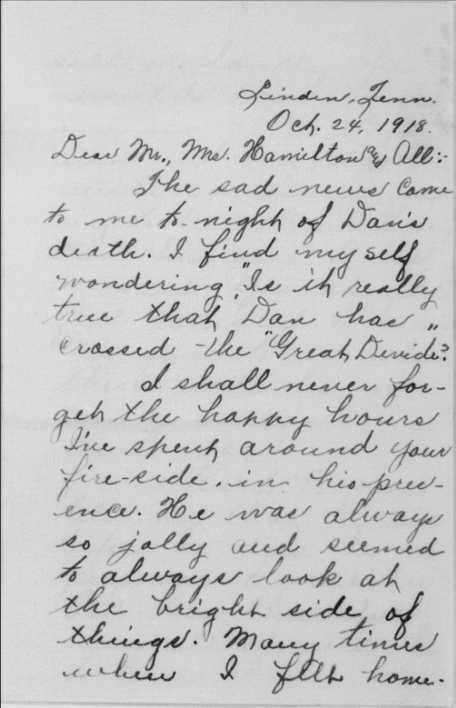 Linden, Tenn.
Oct. 24, 1918.
Dear Mr., Mrs. Hamilton & All:-
The sad news came
to me to-night of Dan's
death. I find myself
wondering, "Is it really
true that Dan has
crossed the "Great Devide"?"
I shall never for-
get the happy hours
I've spent around your
fire-side, in his pres-
ence. He was always
so jolly and seemed
to always look at
the bright side of
things. Many times
when I felt home-